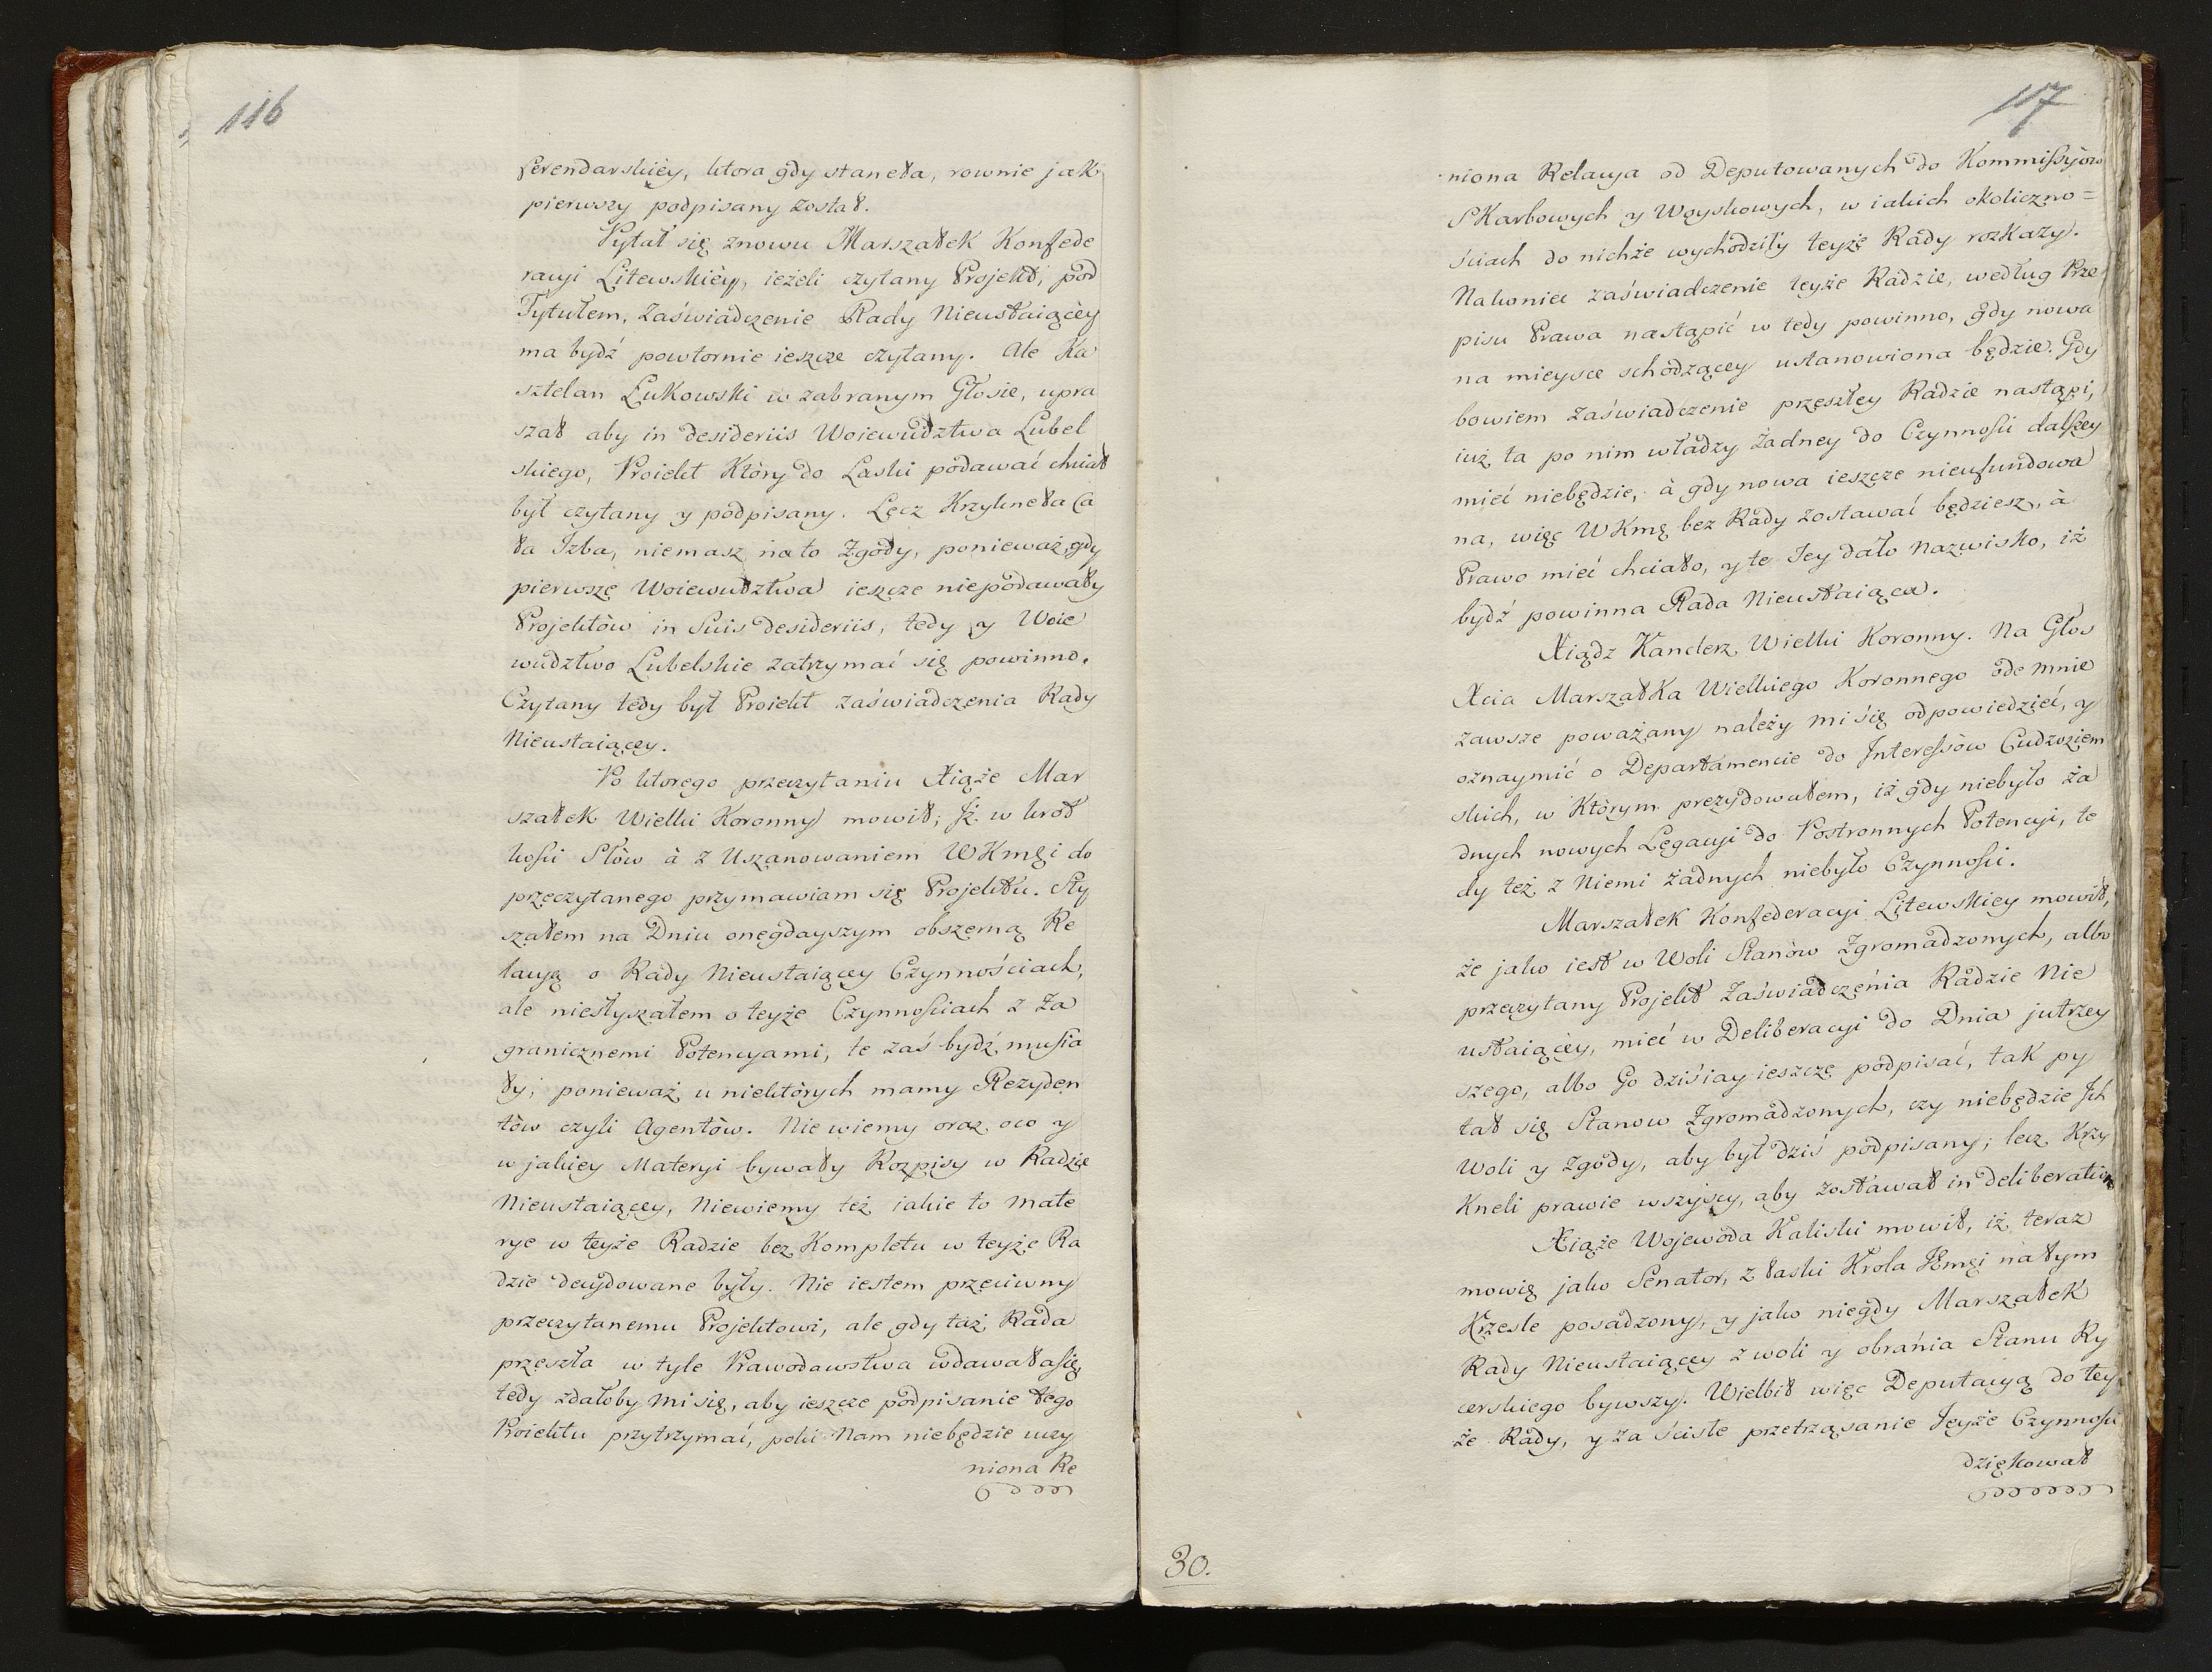 116
ferendarskiéy, ktora gdy staneła, rownie jak
pierwszy podpisany został.
Pytał się znowu Marszałek Konfede
racyi Litewskiéy, ieżeli czytany Projekt, pod
Tytułem, Zaświadczenie Rady Nieustaiącéy
ma bydź powtornie ieszcze czytany. Ale Ka
sztelan Łukowski w zabranym Głosie, upra
szał aby in desideriis Woiewudztwa Lubel
skiego, Proiekt Który do Laski podawać chciał
był czytany y podpisany. Lecz Krzykneła Ca
ła Izba, niemasz na to Zgody, ponieważ gdy
pierwsze Woiewudztwa ieszcze niepodawały
Projektów in Suis desideriis, tedy y Woie
wudztwo Lubelskie zatrzymać się powinno.
Czytany tedy był Proiekt zaświadczenia Rady
Nieustaiącey.
Po ktorego przeczytaniu Xiąże Mar
szałek Wielki Koronny mowił; Iż w krót
kości Słów à z Uszanowaniem WKmści do
przeczytanego przymawiam się Projektu. Sły
szałem na Dniu onegdayszym obszerną Re
lacyą o Rady Nieustaiącey Czynnościach,
ale niesłyszałem o teyże Czynnościach z Za
granicznemi Potencyami, te zaś bydź musia
ły; ponieważ u niektórych mamy Rezyden
tów czyli Agentów. Nie wiemy oraz oco y
w jakiey Materyi bywały Rozpisy w Radzie
Nieustaiącey, Niewiemy też iakie to mate
rye w teyże Radzie bez Kompletu w teyże Ra
dzie decydowane były. Nie iestem przeciwny
przeczytanemu Projektowi, ale gdy taż Rada
przeszła w tyle Prawodawstwa wdawałasię,
tedy zdałoby mi się, aby ieszcze podpisanie tego
Proiektu przytrzymać, poki Nam niebędzie uczy
niona Re
117
niona Relacya od Deputowanych do Kommissyow
Skarbowych y Woyskowych, w iakich okoliczno=
ściach do nichże wychodziły teyże Rady rozkazy.
Nakoniec zaświadczenie teyże Radzie, według Prze
pisu Prawa nastąpić w tedy powinno, gdy nowa
na mieysce schodzącey ustanowiona będzie. Gdy
bowiem zaświadczenie przeszłey Radzie nastąpi,
iuż ta po nim władzy żadney do Czynności dalszey
mieć niebędzie, à gdy nowa ieszcze nieufundowa
na, więc WKmć bez Rady zostawać będziesz, à
Prawo mieć chciało, y te Jey dało Nazwisko, iż
bydź powinna Rada Nieustaiąca.
Xiądz Kanclerz Wielki Koronny. Na Głos
Xcia Marszałka Wielkiego Koronnego ode mnie
zawsze poważany należy mi się odpowiedzieć, y
oznaymić o Departamencie do Interessów Cudzoziem
skich, w Którym prezydowałem, iż gdy niebyło ża
dnych nowych Legacyi do Postronnych Potencyi, te
dy też z Niemi żadnych niebyło Czynności.
Marszałek Konfederacyi Litewskiey mowił,
że jako iest w Woli Stanów Zgromadzonych, albo
przeczytany Projekt Zaświadczenia Radzie Nie
ustaiącéy, mieć w Deliberacyi do Dnia jutrzey
szego, albo Go dzisiay ieszcze podpisać, tak py
tał się Stanow Zgromadzonych, czy niebędzie Ich
Woli y Zgody, aby był dziś podpisany; lecz Krzy
Kneli prawie wszyscy, aby zostawał in deliberatio
Xiąże Wojewoda Kaliski mowił, iż teraz
mowię jako Senator, z łaski Krola JKmści na tym
Krześle posadzony, y jako niegdy Marszałek
Rady Nieustaiącey z woli y obrania Stanu Ry
cerskiego bywszy. Wielbił więc Deputacyą do tey
że Rady, y za ściste przetrząsanie Jeyże Czynności
dziękował
30.